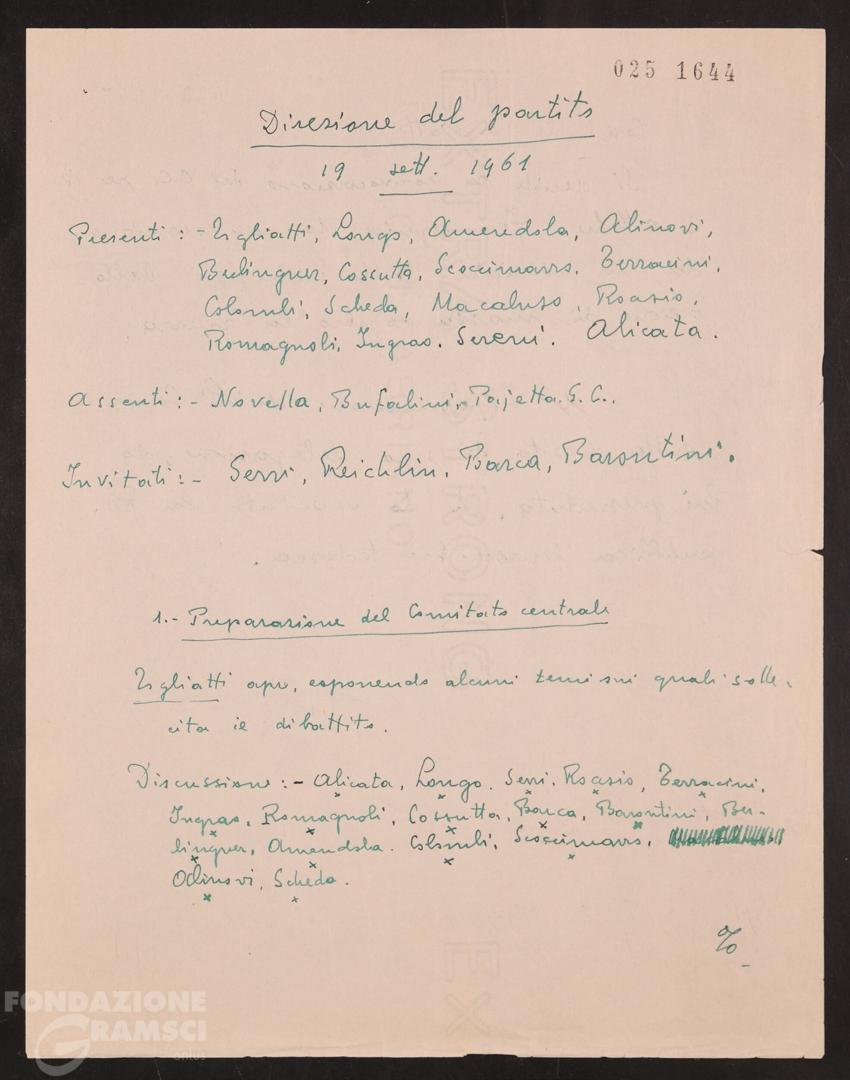 025 1644
Direzione del partito
19 sett. 1961
Presenti : - Togliatti, Longo, Amendola, Alinovi,
Berlinguer, Cossutta, Scoccimarro, Terracini,
Colombi, Scheda, Macaluso, Roasio,
Romagnoli, Ingrao. Sereni. Alicata.
Assenti : - Novella, Bufalini, Pajetta G. C..
Invitati : - Serri, Reichlin, Barca, Barontini.
1.- Preparazione del Comitato centrale
Togliatti apre, esponendo alcuni temi sui quali solle-
cita il dibattito.
Discussione : - Alicata, Longo. Serri, Roasio, Terracini,
Ingrao, Romagnoli, Cossutta, Barca, Barontini, Ber-
linguer, Amendola. Colombi, Scoccimarro,
Alinovi, Scheda.
%
FONDAZIONE
GRAMSCI
onlus